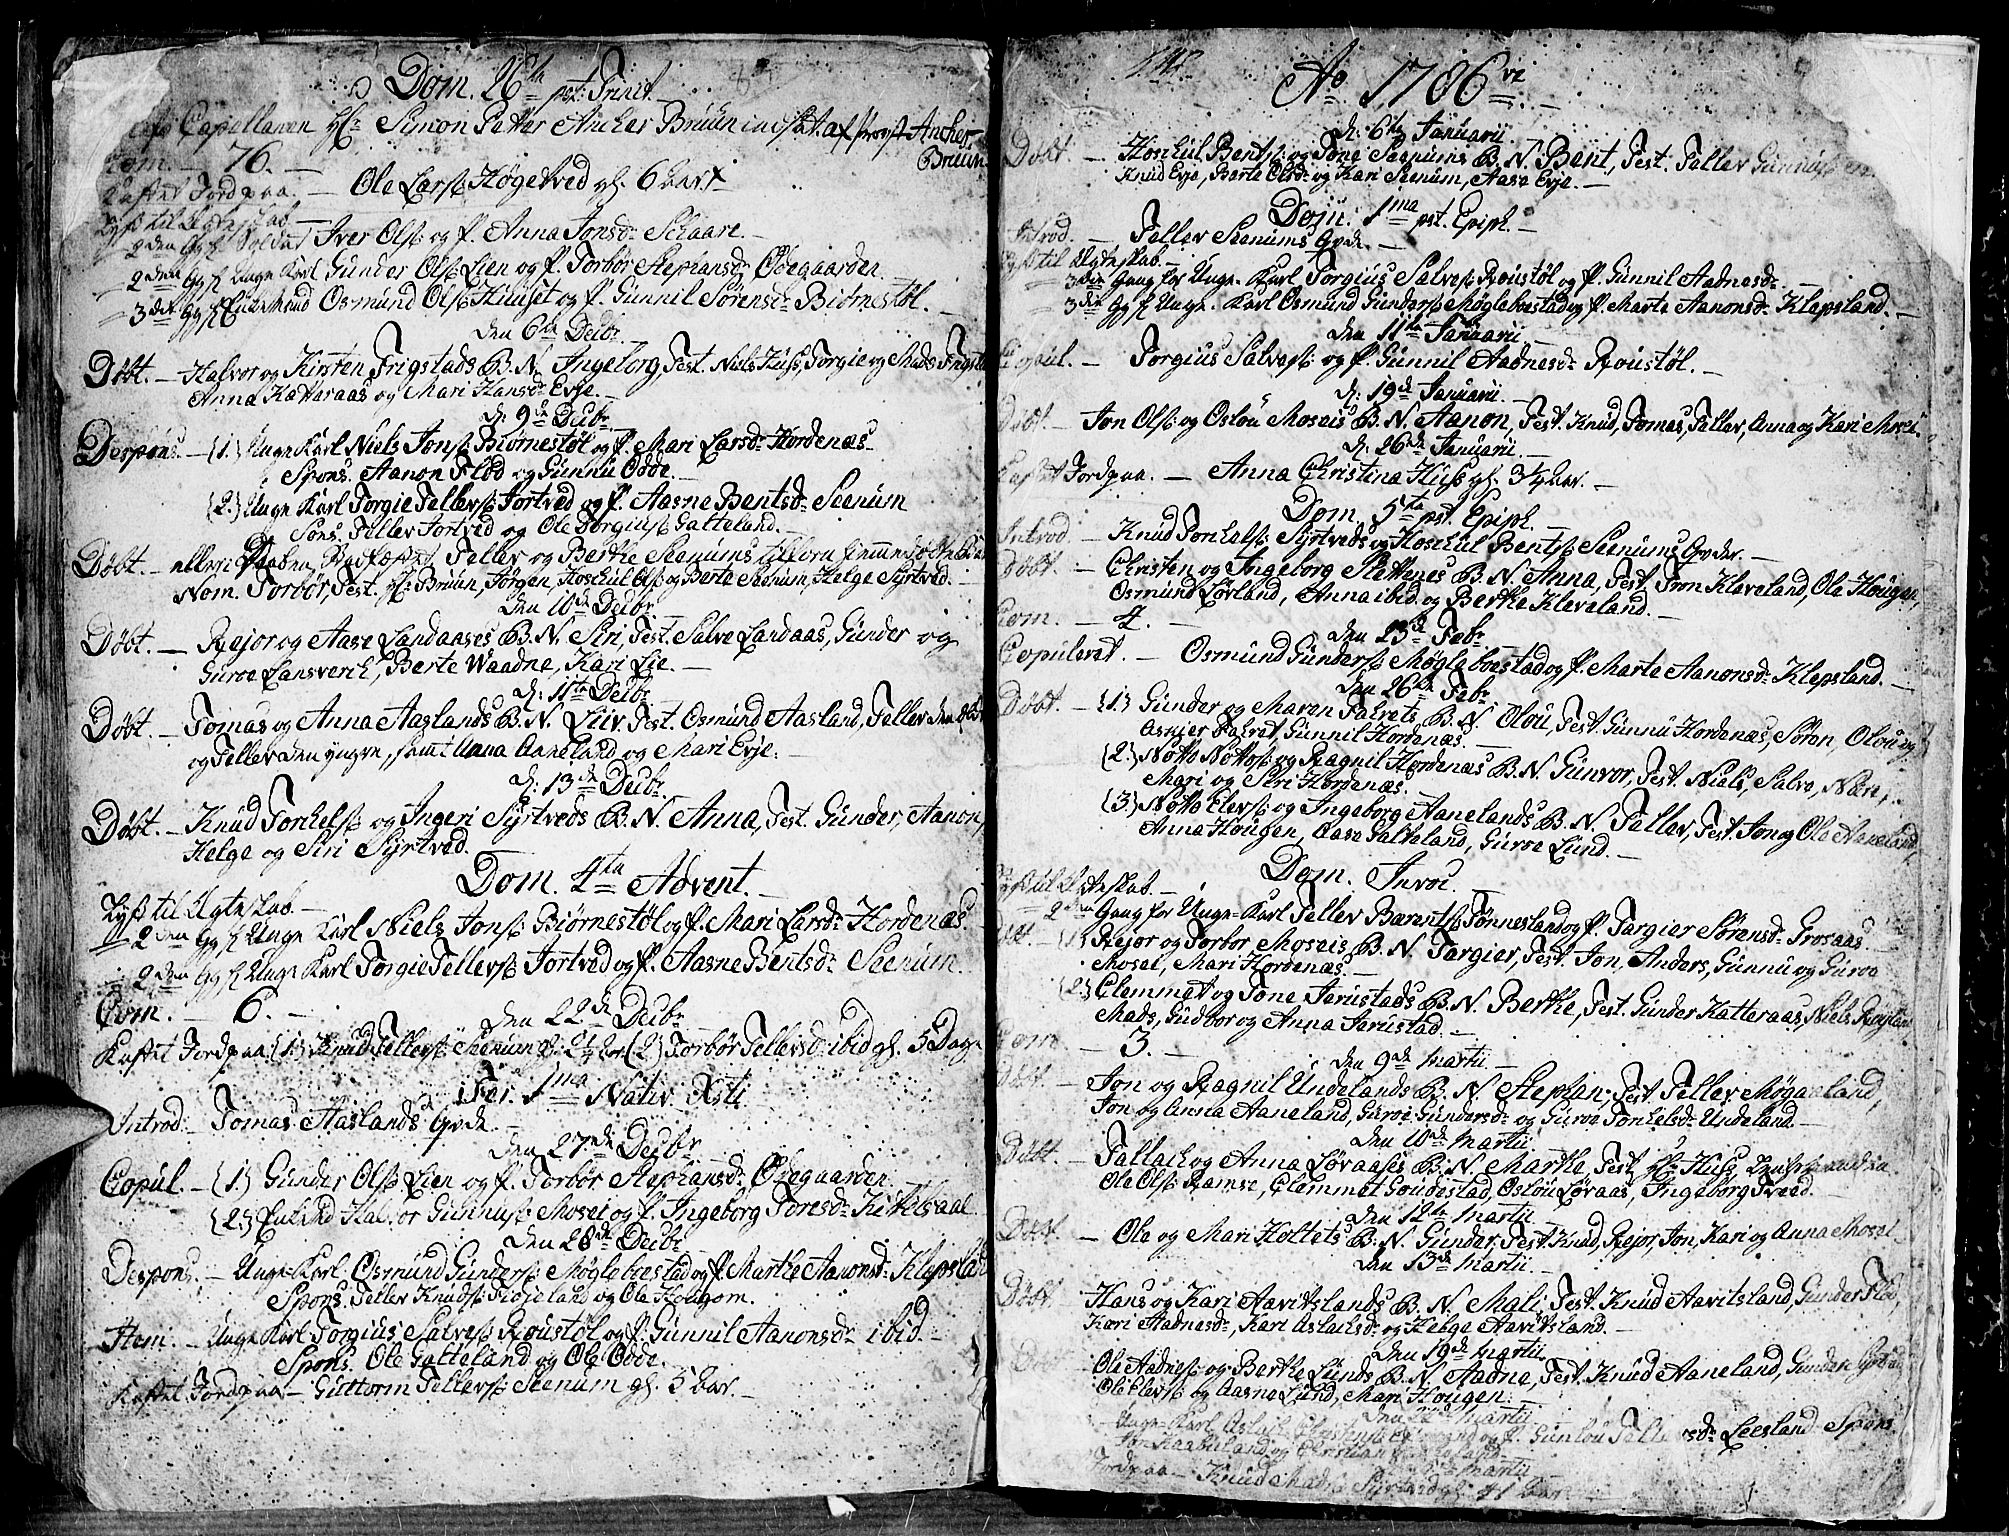 Dom. 26ta pst. Trinit.
Capellanen Hr. Simon Petter Ancher Bruun indsat af Provst Ancher
Bruun
Com. — 76. —
Kastet Jord paa. — Ole Larsß. Høgetved gl. 6 aar
Lyst til Ægteskab. —
2den Gg f. Soldat Iver Olsß. og P. Anna Jonsd. Schaare. —
2den Gg f. Unge Karl Gunder Olsß. Lien og P. Torbor Stephansd. Ødegaarden. —
3die Gg f. Enkemand Osmund Olsß. Hiuset og P. Gunnil Sørensd. Biørnestøl. —
den 6te Decbr.
Døbt. — Halvor og Kirsten Frigstads B. N. Ingeborg, Test. Niels Huss, Torgie og Mads Frigstad
Anna Katteraas og Mari Hansd. Evje. —
d. 9de Decbr.
Despons. — (1.) Unge Karl Niels Jonsß. Biørnestøl og P. Mari Larsd. Hordenæs.
Spons. Aanon Flød og Gunnu Odde.
(2.) Unge Karl Torgie Tellefsß. Tortved og P. Aasne Bentsd. Seenum
Spons. Tellev Tortved og Ole Torgiusß. Galteland. —
Døbt. — Tellev og Berthe Seenums
Nom. Torbor, Test. Hr. Bruun, Jörgen, Hoskul Olsß. og Berte Seenum, Helge Syrtved. —
den 10de Decbr.
Døbt. — Rejor og Aase Landaases B. N. Siri, Test. Salve Landaas, Gunder og
Guroe Lansverk, Berte Waadne, Kari Lie. —
d. 11te Decbr.
Døbt. — Tomas og Anna Aaslands B. N. Liiv, Test. Osmund Aasland, Tellev den
og Tellev den yngre, samt Anna Aaneland og Mari Evje. —
d. 13de Decbr.
Døbt. — Knud Torkelsß. og Ingeri Syrtveds B. N. Anna, Test. Gunder, Aanon,
Helge og Siri Syrtved.
Dom. 4ta Advent. —
Lyst til Ægteskab. —
2den Gg f. Unge Karl Niels Jonsß. Biørnestøl og P. Mari Larsd. Hordenæs.
2den Gg f. Unge Karl Torgie Tellefsß. Tortved og P. Aasne Bentsd. Seenum.
Com. — 6. —
den 22de Decbr.
Kastet Jord paa (1.) Knud Tellefsß. Seenum gl. 2½ aar (2.) Torbor Tellefsd. ibid gl. 5 Dage
Fer. 1ma Nativ. Xsti
Introd. — Tomas Aaslands Qvde. —
den 27de Decbr.
Copul. — (1.) Gunder Olsß. Lien og P. Torbor Stephansd. Ødegaarden. —
(2.) Halvor Gunnusß. Mosei og P. Ingeborg Toresd. Kittelsaae
den 28de Decbr.
Despons. — Unge Karl Osmund Gundersß. Møglebøestad og P. Marthe Aanonsd. Klepsland
Spons. Tellev Knudsß. Fløjeland og Ole Hougom.
Item. — Unge Karl Torgius Salvesß. Roustøl og P. Gunnil Aanonsd. ibid. —
Spons. Ole Galteland og Ole Odde.
Kastet Jord paa — Guttorm Tellefsß. Seenum gl. 5 aar. —
Ao. 1786
d. 6te Januarii
Døbt. — Hoskul Bentsß. og Tone Seenums B. N. Bent, Test. Tellev Gunnusß.
Knud Evje, Berte Olsd. og Kari Seenum, Aase Evje. —
Dom. 1ma pst. Epiph. —
Introd. — Tellev Seenums Qvde. —
Lyst til Ægteskab. —
3die Gang for Unge Karl Torgius Salvesß. Roustøl og P. Gunnil Aadnesd. —
3die Gg f. Unge Karl Osmund Gundersß. Møglebøestad og P. Marte Aanonsd. Klepsland. —
den 11te Januarii
Copul. — Torgius Salvesß. og P. Gunnil Aadnesd. Roustøl. —
d. 19de Januarii. —
Døbt. — Jon Olsß. og Oslou Moseis B. N. Aanon, Test. Knud, Tomas, Tellev, Anna og Kari Mosei.
d. 26de Januarii. —
Kastet Jord paa. — Anna Christina Huss gl. ¾ aar. —
Dom. 5ta pst. Epiph. —
Introd. — Knud Torkelsß. Syrtveds og Hoskul Bentsß. Seenums Qvder. —
Døbt. — Christen og Ingeborg Slettenes B. N. Anna, Test. Tron Klaveland, Ole Hougen,
Osmund Lørland, Anna ibid. og Berthe Klaveland. —
Com. — 4. —
den 23de Febr.
Copuleret. — Osmund Gundersß. Møglebøestad og P. Marte Aanonsd. Klepsland. —
den 26de Febr.
Døbt. — (1.) Gunder og Maren Falrets B. N. Olou, Test. Gunnu Hordenæs, Søren, Olou og
Asnier Falret, Gunnil Hordenæs. —
(2.) Notto Nottosß. og Ragnil Hordenæs B. N. Gunvor, Test. Niels, Salve,
Mari og Siri Hordenæs. —
(3.) Notto Elefsß. og Ingeborg Aanelands B. N. Tellev, Test. Jon og Ole Aaneland,
Anna Hougen, Aase Galteland, Guroe Lund. —
Dom. Invoc. —
Lyst til Ægteskab. —
2den Gang for Unge Karl Tellev Barentsß. Tønnesland og P. Targier Sørensd. Grosaas.
Døbt. — (1.) Rejor og Torbor Moseis B. N. Targier, Test. Jon, Anders, Gunnu og Guroe
Mosei, Mari Hordenæs. —
(2.) Clemmet og Tone Jarustads B. N. Berthe, Test. Gunder Katteraas, Niels
Mads, Gudbor og Anna Jarustad. —
Com. — 3. —
den 9de Martii. —
Døbt — Jon og Ragnil Undelands B. N. Stephan, Test. Tellev Møgaaland,
Jon og Anna Aaneland, Guroe Gundersd. og Guroe Torkelsd. Undeland. —
den 10de Martii
Døbt. — Tallak og Anna Løraases B. N. Marthe, Test. Hr. Huss,
Ole Olsß. Ramse, Clemmet Goudestad, Oslou Løraas, Ingeborg Tveed. —
den 12te Martii
Døbt — Ole og Mari Holtets B. N. Gunder, Test. Knud, Rejor, Jon, Kari og Anna Mosei
den 13de Martii. —
Døbt — Hans og Kari Aavitslands B. N. Mali, Test. Knud Aavitsland, Gunder Flød,
Kari Aadnesd., Kari Aslaksd. og Helge Aavitsland. —
den 19de Martii
Ole Aadnesß. og Berthe Lunds B. N. Aadne, Test. Knud Aaneland, Gunder
Ole Elefsß. og Aasne Lund, Mari Hougen. —
Martii
Unge Karl og P. Gunlou Leesland Spons.
og Christian
Martii
Jord paa — Knud Syrtved gl.